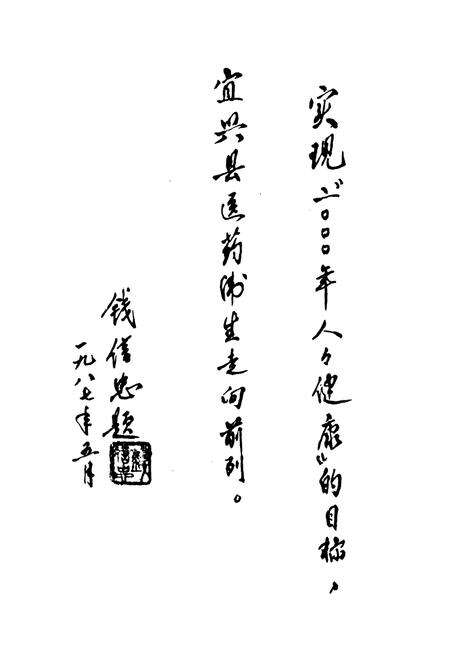 实现“二〇〇〇年人人健康”的目标，
宜兴县医药卫生走向前列。
钱信忠题
一九八七年五月